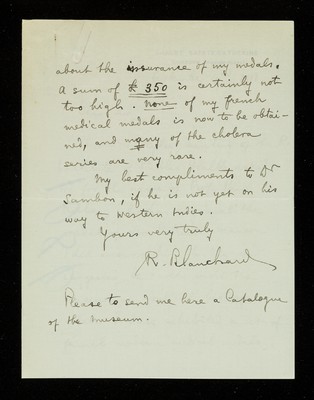 about the insurance of my medals.
A sum of £ 350 is certainly not
too high. None of my french
medical medals is now to be obtai-
ned, and many of the cholera
series are very rare.
My best compliments to Dr
Sambon, if he is not yet on his
way to Western Indies.
Yours very truly
R. Blanchard
Please to send me here a Catalogue
of the museum.